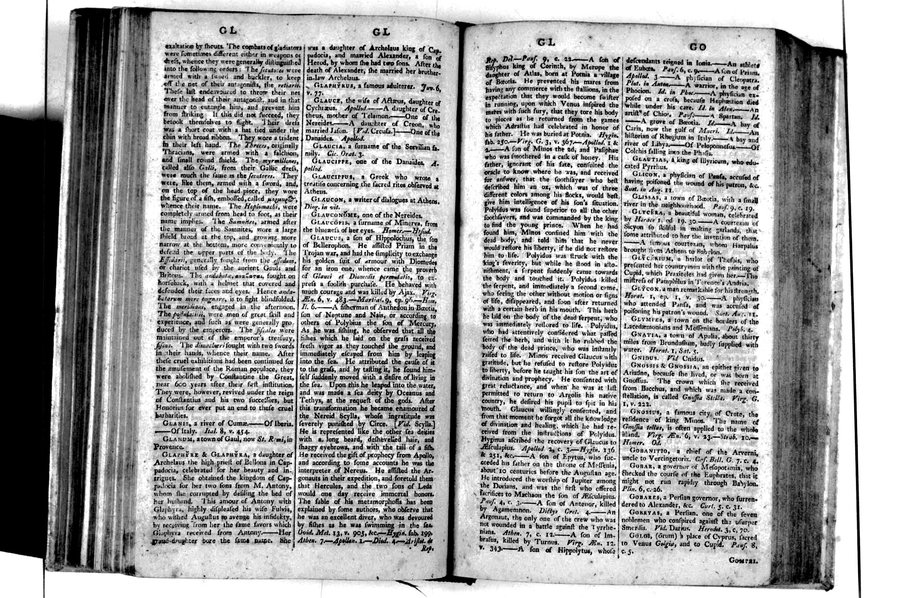 GL
GL
exaltation by shouts. The combats of gladiators
were sometimes different either in weapons or
dress, whence they were generally distinguished
into the following orders: The secutores were
armed with a sword and buckler, to keep
off the net of their antagonists, the retiarii.
These last endeavoured to throw their net
over the head of their antagonist, and in that
manner to entangle him, and prevent him
from striking. If this did not succeed, they
betook themselves to flight. Their dress
was a short coat with a hat tied under the
chin with broad ribbon. They wore a trident
in their left hand. The Threces, originally
Thracians, were armed with a faulchion
and small round shield. The myrmillones,
called also Galli, from their Gallic dress,
were much the same as the secutores. They
were, like them, armed with a sword, and,
on the top of the head-piece, they wore
the figure of a fish, embossed, called
whence their name. The Hoplomachi, were
completely armed from head to foot, as their
name implies. The Samnites, armed after
the manner of the Samnites, wore a large
shield broad at the top, and growing more
narrow at the bottom, more conveniently to
defend the upper parts of the body. The
Essedarii, generally fought from the essedum,
or chariot used by the ancient Gauls and
Britons. The andabatæ, fought on
horseback, with a helmet that covered and
defended their faces and eyes. Hence anda-
batarum more pugnare, is to fight blindfolded.
The meridiani, engaged in the afternoon.
The postulatitii, were men of great skill and
experience, and such as were generally pro-
duced by the emperors. The fiscales were
maintained out of the emperor's treasury,
fiscus. The dimachæri fought with two swords
in their hands, whence their name. After
these cruel exhibitions had been continued for
the amusement of the Roman populace, they
were abolished by Constantine the Great,
near 600 years after their first institution.
They were, however, revived under the reign
of Constantius and his two successors, but
Honorius for ever put an end to these cruel
barbarities.
GLANIS, a river of Cumæ.—Of Iberia.
—Of Italy. Ital. 8, v. 454.
GLANUM, a town of Gaul, now St. Remi, in
Provence.
GLAPHYRE & GLAPHYRA, a daughter of
Archelaus the high priest of Bellona in Cap-
padocia, celebrated for her beauty and in-
trigues. She obtained the kingdom of Cap-
padocia for her two sons from M. Antony,
whom she corrupted by defiling the bed of
her husband. This amour of Antony with
Glaphyra, highly displeased his wife Fulvia,
who wished Augustus to avenge his infidelity,
by receiving from her the same favors which
Glaphyra received from Antony.—Her
grand-daughter bore the same name. She
was a daughter of Archelaus king of Cap-
padocia, and married Alexander, a son of
Herod, by whom she had two sons. After the
death of Alexander, she married her brother-
in-law Archelaus.
GLAPHYRUS, a famous adulterer. Juv. 6,
v. 77.
GLAUCE, the wife of Actæus, daughter of
Cychræus. Apollod.—A daughter of Cre-
theus, mother of Telamon.—One of the
Nereides.—A daughter of Creon, who
married Jason. [Vid. Creusa.]—One of the
Danaides. Apollod.
GLAUCIA, a surname of the Servilian fa-
mily. Cic. Orat. 3.
GLAUCIPPE, one of the Danaides. A-
pollod.
GLAUCIPPUS, a Greek who wrote a
treatise concerning the sacred rites observed at
Athens.
GLAUCON, a writer of dialogues at Athens.
Diog. in vit.
GLAUCONOME, one of the Nereides.
GLAUCOPIS, a surname of Minerva, from
the blueness of her eyes. Homer.—Hesiod.
GLAUCUS, a son of Hippolochus, the son
of Bellerophon. He assisted Priam in the
Trojan war, and had the simplicity to exchange
his golden suit of armour with Diomedes
for an iron one, whence came the proverb
of Glauci et Diomedis permutatio, to ex-
press a foolish purchase. He behaved with
much courage and was killed by Ajax. Virg.
Æn. 6, v. 483.—Martial. 9, ep. 96.—Hom.
Il. 6.—A fisherman of Anthedon in Bœotia,
son of Neptune and Nais, or according to
others of Polybius the son of Mercury.
As he was fishing, he observed that all the
fishes which he laid on the grass received
fresh vigor as they touched the ground, and
immediately escaped from him by leaping
into the sea. He attributed the cause of it
to the grass, and by tasting it, he found him-
self suddenly moved with a desire of living in
the sea. Upon this he leaped into the water,
and was made a sea deity by Oceanus and
Tethys, at the request of the gods. After
this transformation he became enamoured of
the Nereid Scylla, whose ingratitude was
severely punished by Circe. [Vid. Scylla.]
He is represented like the other sea deities
with a long beard, dishevelled hair, and
shaggy eyebrows, and with the tail of a fish.
He received the gift of prophecy from Apollo,
and according to some accounts he was the
interpreter of Nereus. He assisted the Ar-
gonauts in their expedition, and foretold them
that Hercules, and the two sons of Leda
would one day receive immortal honors.
The fable of his metamorphosis has been
explained by some authors, who observe that
he was an excellent diver, who was devoured
by fishes as he was swimming in the sea.
Ovid. Met. 13, v. 905, &c.—Hygin. fab. 199.
Athen. 7.—Apollon. 1.—Diod. 4.—Aristot. de
Rep.
GL
GO
Rep. Del.—Paus. 9, c. 22.—A son of
Sisyphus king of Corinth, by Merope the
daughter of Atlas, born at Potnia a village
of Bœotia. He prevented his mares from
having any commerce with the stallions, in the
expectation that they would become swifter
in running, upon which Venus inspired the
mares with such fury, that they tore his body
to pieces as he returned from the games
which Adrastus had celebrated in honor of
his father. He was buried at Potnia. Hygin.
fab. 250.—Virg. G. 3, v. 367.—Apollod. 1 &
2.—A son of Minos the 2d, and Pasiphae
who was smothered in a cask of honey. His
father, ignorant of his fate, consulted the
oracle to know where he was, and received
for answer, that the soothsayer who best
described him an ox, which was of three
different colors among his flocks, would best
give him intelligence of his son's situation.
Polyidus was found superior to all the other
soothsayers, and was commanded by the king
to find the young prince. When he had
found him, Minos confined him with the
dead body, and told him that he never
would restore his liberty, if he did not restore
him to life. Polyidus was struck with the
king's severity, but while he stood in asto-
nishment, a serpent suddenly came towards
the body and touched it. Polyidus killed
the serpent, and immediately a second came,
who seeing the other without motion or signs
of life, disappeared, and soon after returned
with a certain herb in his mouth. This herb
he laid on the body of the dead serpent, who
was immediately restored to life. Polyidus,
who had attentively considered what passed
seized the herb, and with it he rubbed the
body of the dead prince, who was instantly
raised to life. Minos received Glaucus with
gratitude, but he refused to restore Polyidus
to liberty, before he taught his son the art of
divination and prophecy. He consented with
great reluctance, and when he was at last
permitted to return to Argolis his native
country, he desired his pupil to spit in his
mouth. Glaucus willingly consented, and
from that moment he forgot all the knowledge
of divination and healing, which he had re-
ceived from the instructions of Polyidus.
Hyginus ascribed the recovery of Glaucus to
Æsculapius. Apollod. 2, c. 3.—Hygin. 136
& 251, &c.—A son of Epytus, who suc-
ceeded his father on the throne of Messenia,
about 10 centuries before the Augustan age.
He introduced the worship of Jupiter among
the Dorians, and was the first who offered
sacrifices to Machaon the son of Æsculapius.
Paus. 4, c. 3.—A son of Antenor, killed
by Agamemnon. Dictys Cret. 4.—An
Argonaut, the only one of the crew who was
not wounded in a battle against the Tyrrhe-
nians. Athen. 7, c. 12.—A son of Im-
brasus, killed by Turnus. Virg. Æn. 12.
v. 343.—A son of Hippolytus, whose
descendants reigned in Ionia.—An athlete
of Eubœa. Paus. 6, c. 9.—A son of Priam.
Apollod. 3.—A physician of Cleopatra.
Plut. in Anton.—A warrior, in the age of
Phocion. Id. in Phoc.—A physician ex-
posed on a cross, because Hephæstion died
while under his care. Id. in Alex.—An
artist of Chios. Paus.—A Spartan. Id.
—A grove of Bœotia. Id.—A bay of
Caria, now the gulf of Macri. Id.—An
historian of Rhegium in Italy.—A bay and
river of Libya.—Of Peloponnesus.—Of
Colchis falling into the Phasis.
GLAUTIAS, a king of Illyricum, who edu-
cated Pyrrhus.
GLICON, a physician of Pansa, accused of
having poisoned the wound of his patron, &c.
Suet. in Aug. 11.
GLISSAS, a town of Bœotia, with a small
river in the neighbourhood. Paus. 9, c. 19.
GLYCERA, a beautiful woman, celebrated
by Horace 1, od. 19, 30.—A courtezan of
Sicyon so skilful in making garlands, that
some attributed to her the invention of them.
—A famous courtezan, whom Harpalus
brought from Athens to Babylon.
GLYCERIUM, a harlot of Thespis, who
presented her countrymen with the painting of
Cupid, which Praxiteles had given her.—The
mistress of Pamphilus in Terence's Andria.
GLYCON, a man remarkable for his strength.
Horat. 1, ep. 1, v. 30.—A physician
who attended Pansa, and was accused of
poisoning his patron's wound. Suet. Aug. 11.
GLYMPES, a town on the borders of the
Lacedæmonians and Messenians. Polyb. 4.
GNATIA, a town of Apulia, about thirty
miles from Brundusium, badly supplied with
water. Horat. 1, Sat. 5.
GNIDUS. Vid Cnidus.
GNOSSIS & GNOSSIA, an epithet given to
Ariadne, because she lived, or was born at
Gnossus. The crown which she received
from Bacchus, and which was made a con-
stellation, is called Gnossia Stella. Virg. G.
1, v. 222.
GNOSSUS, a famous city of Crete, the
residence of king Minos. The name of
Gnossia tellus, is often applied to the whole
island. Virg. Æn. 6, v. 23.—Strab. 10.—
Homer. Od.
GOBANITIO, a chief of the Arverni,
uncle to Vercingetorix. Cæs. Bell. G. 7, c. 4.
GOBAR, a governor of Mesopotamia, who
checked the course of the Euphrates, that it
might not run rapidly through Babylon.
Plin. 6, c. 26.
GOBARES, a Persian governor, who surren-
dered to Alexander, &c. Curt. 5, c. 31.
GOBRYAS, a Persian, one of the seven
noblemen who conspired against the usurper
Smerdis. Vid. Darius. Herodot. 3, c. 70.
GOLGI, (orum) a place of Cyprus, sacred
to Venus Golgia, and to Cupid. Paus. 8,
c. 5.
GOMPHI.